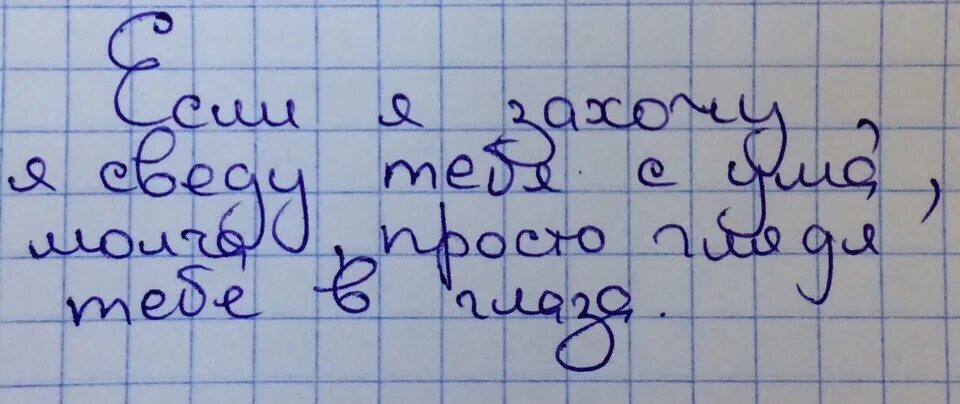 Если я захочу,
я сведу тебя с ума,
молча, просто глядя
тебе в глаза.